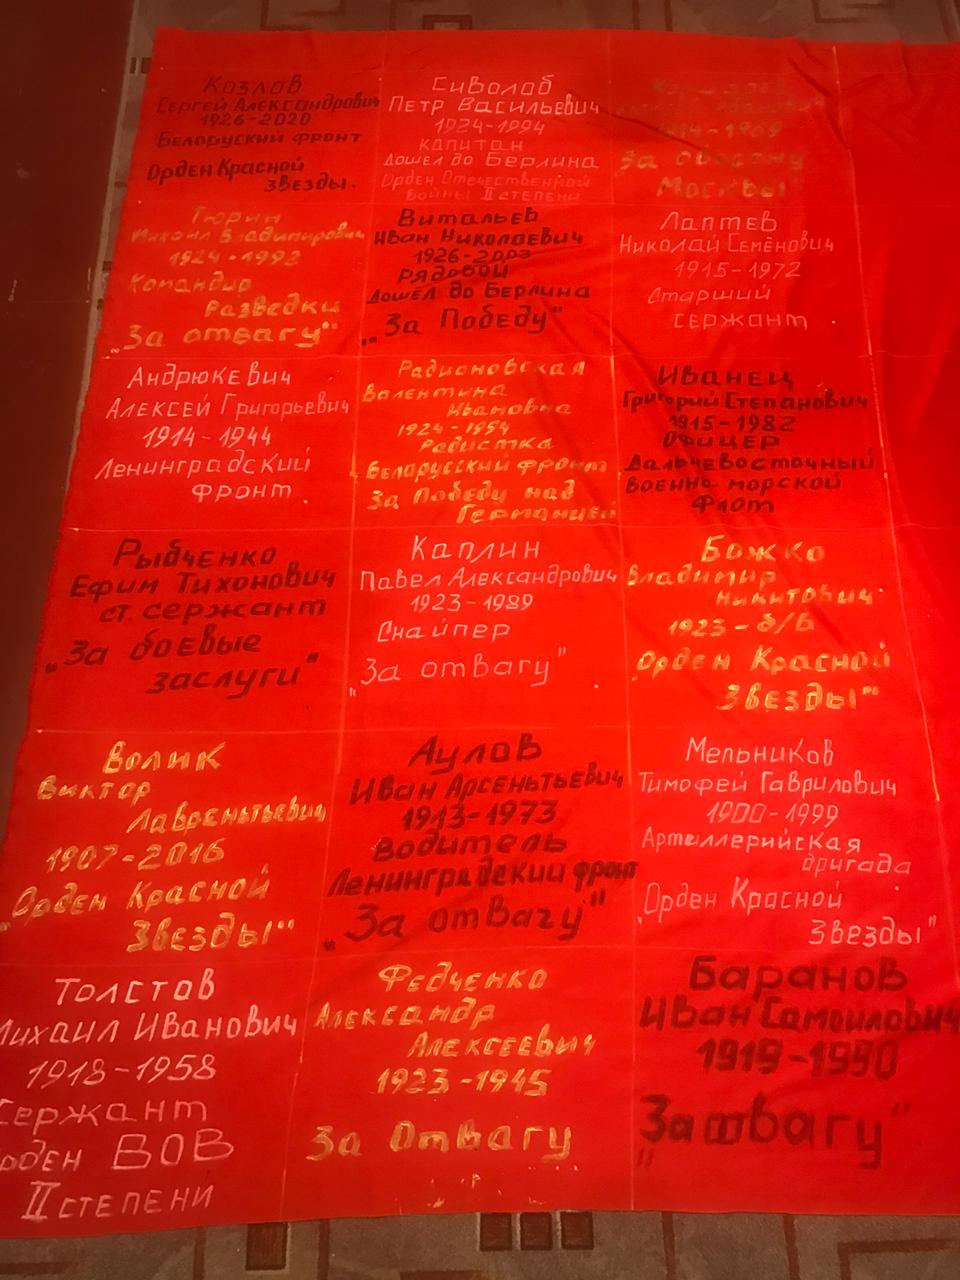 Козлов
Сергей Александрович
1926-2020
Белоруский фронт
Орден Красной
звезды.
Сиволоб
Петр Васильевич
1924-1994
капитан
Дошел до Берлина
Орден Отечественной
Войны II степени
За оборону
Москвы
Тюрин
Михаил Владимирович
1924-1992
Командир
Разведки
„За отвагу"
Витальев
Иван Николаевич
1926-2003
Рядовой
Дошёл до Берлина
„За Победу"
Лаптев
Николай Семёнович
1915-1972
Старший
сержант.
Андрюкевич
Алексей Григорьевич
1914-1944
Ленинградский
фронт.
Радионовская
Валентина
Ивановна
1924-1954
Радистка
Беларусский фронт
За Победу над
Германией
Иванец
Григорий Степанович
1915-1982
Офицер
Дальневосточный
военно-морской
Флот
Рыбченко
Ефим Тихонович
ст. сержант
„За боевые
заслуги"
Каплин
Павел Александрович
1923-1989
Снайпер
„За отвагу"
Божко
Владимир
Никитович
1923-б/в
„Орден Красной
Звезды"
Волик
Виктор
Лаврентьевич
1907-2016
„Орден Красной
Звезды"
Аулов
Иван Арсентьевич
1913-1973
Водитель
Ленинградский фронт
„За отвагу"
Мельников
Тимофей Гаврилович
1900-1999
Артиллерийская
бригада
„Орден Красной
Звезды"
Толстов
Михаил Иванович
1918-1958
Сержант
Орден ВОВ
II степени
Федченко
Александр
Алексеевич
1923-1945
За Отвагу
Баранов
Иван Самойлович
1919-1990
„За отвагу"